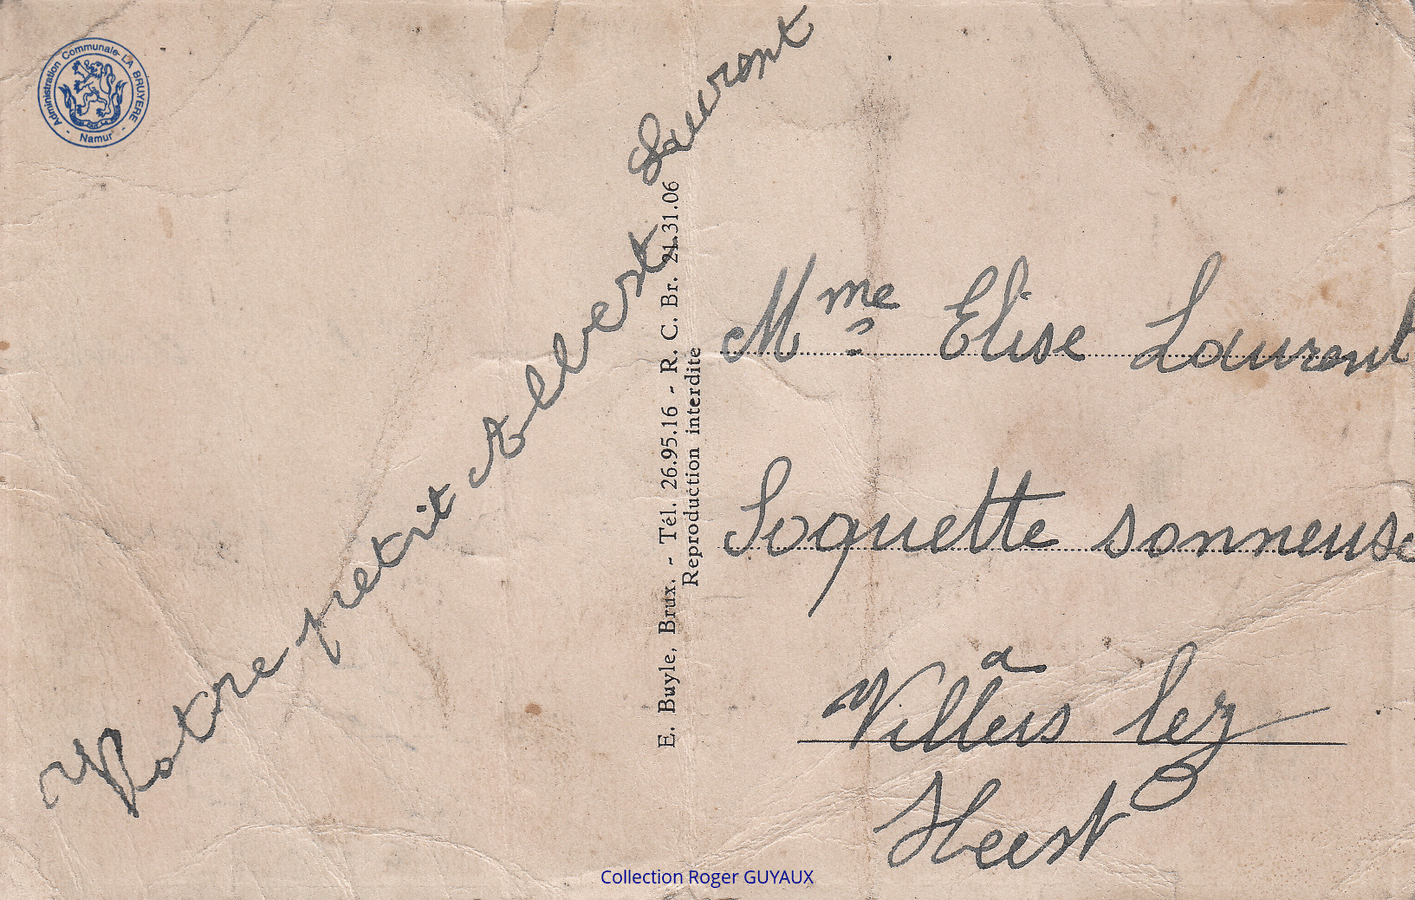 Administration Communale LA BRUYERE
- Namur -
Votre petit Albert Laurent
E. Buyle, Brux. - Tél. 26.95.16 - R. C. Br. 21.31.06
Reproduction interdite
Mme Elise Laurent
Soquette sonneuse
a
Villers lez
Heest
Collection Roger GUYAUX